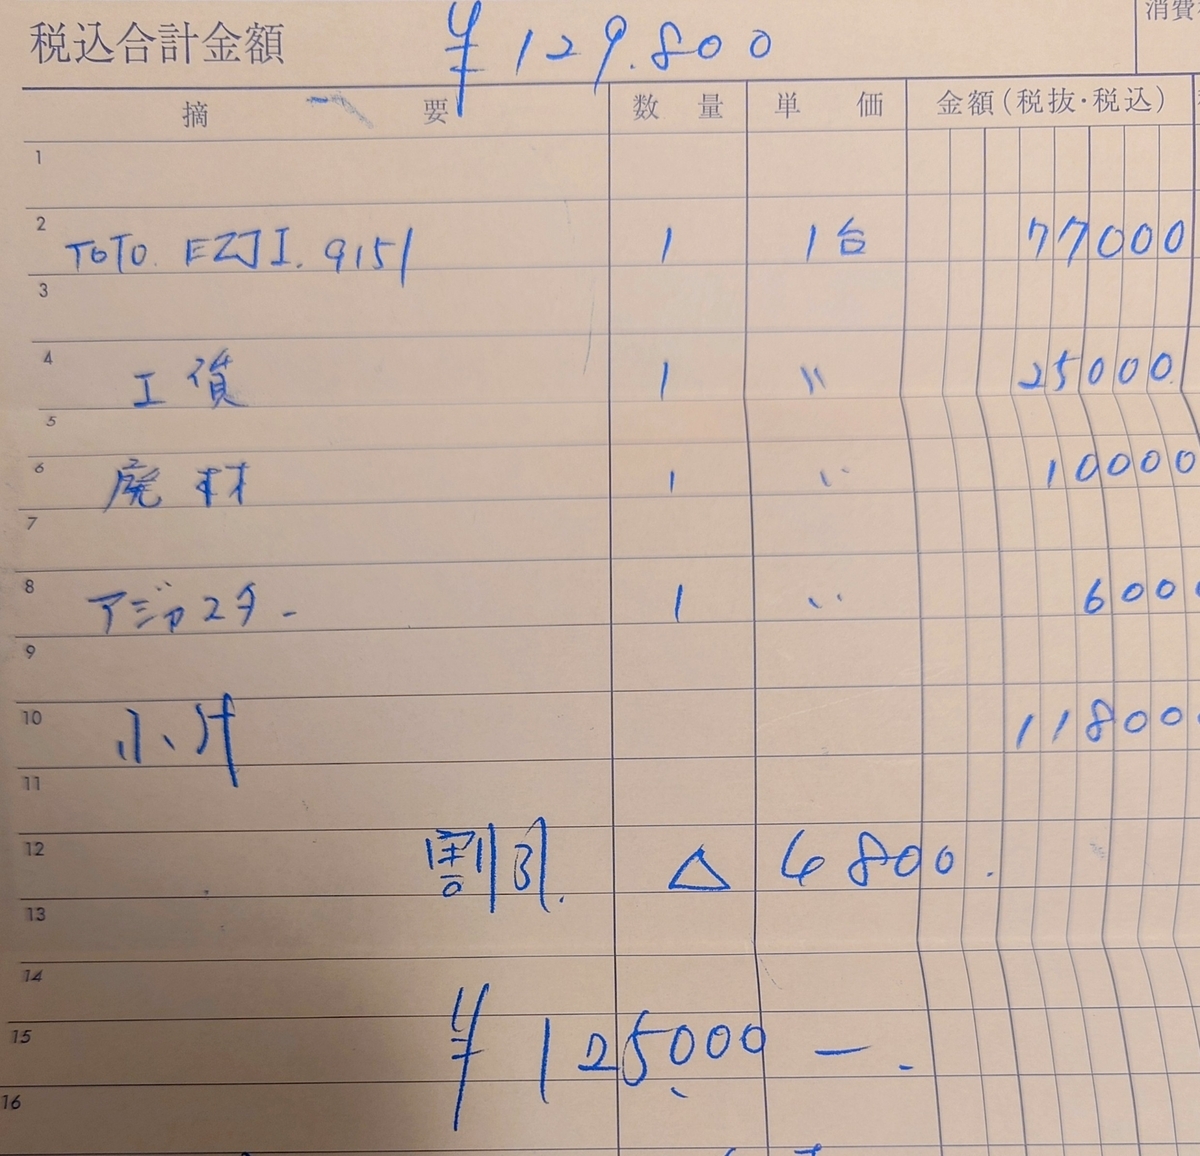 消費
税込合計金額 ¥129.800
摘 要 数 量 単 価 金額(税抜・税込)
1
2 TOTO. EZJI. 9151 1 1台 77000
3
4 工賃 1 〃 25000
5
6 廃材 1 〃 10000
7
8 アジャスター 1 〃 6000
9
10 小計 11800
11
12 割引. △ 6800.
13
14
15 ¥125,000 —.
16